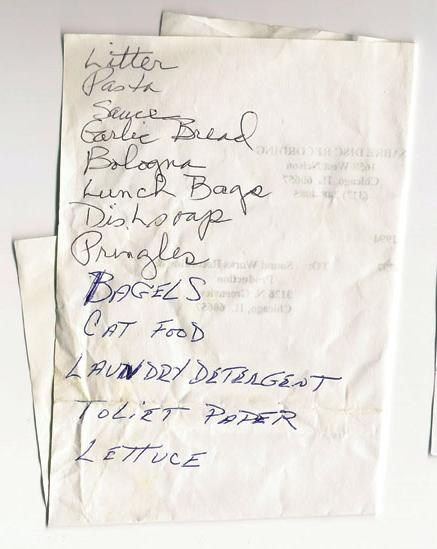 Litter
Pasta
Sauce
Garlic Bread
Bologna
Lunch Bags
Dishsoap
Pringles
BAGELS
CAT FOOD
LAUNDRY DETERGENT
TOLIET PAPER
LETTUCE